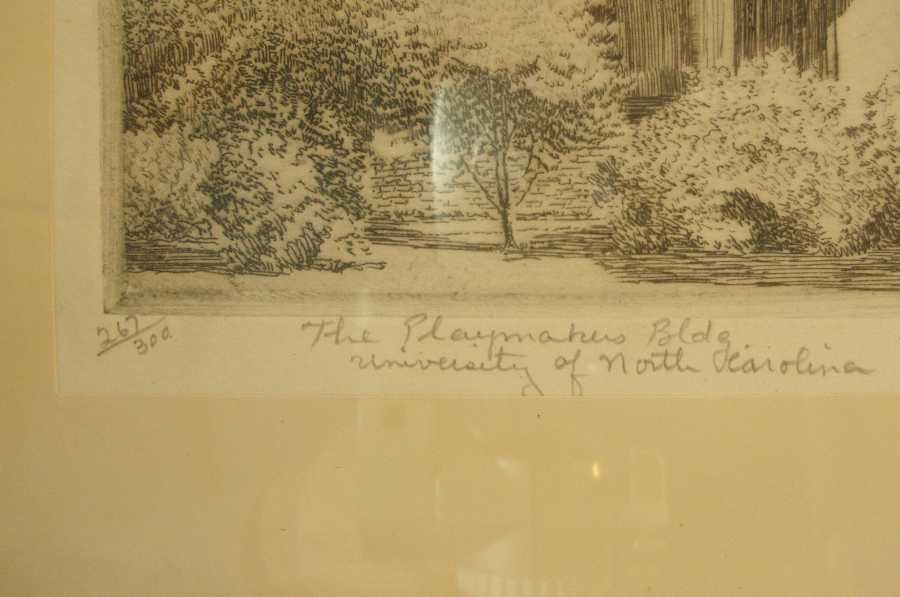 267/300
The Playmakers Bldg
University of North Carolina